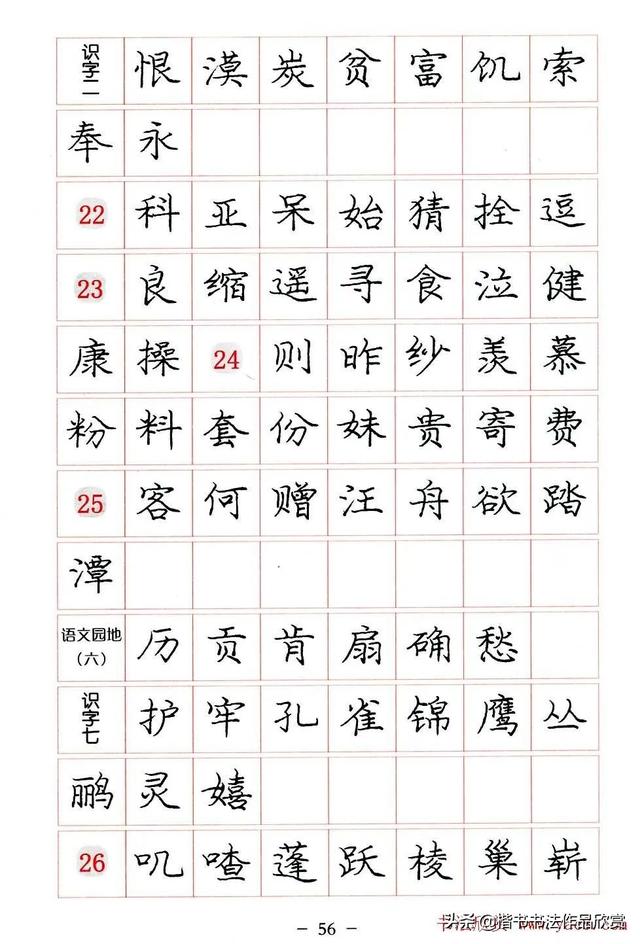 识字二 恨 漠 炭 贫 富 饥 索
奉 永
22 科 亚 呆 始 猜 拴 逗
23 良 缩 遥 寻 食 泣 健
康 操 24 则 昨 纱 羡 慕
粉 料 套 份 妹 贵 寄 费
25 客 何 赠 汪 舟 欲 踏
潭
语文园地（六） 历 贡 肯 扇 确 愁
识字七 护 牢 孔 雀 锦 鹰 丛
鹏 灵 嬉
26 叽 喳 蓬 跃 棱 巢 崭
- 56 -
头条@楷书书法作品欣赏